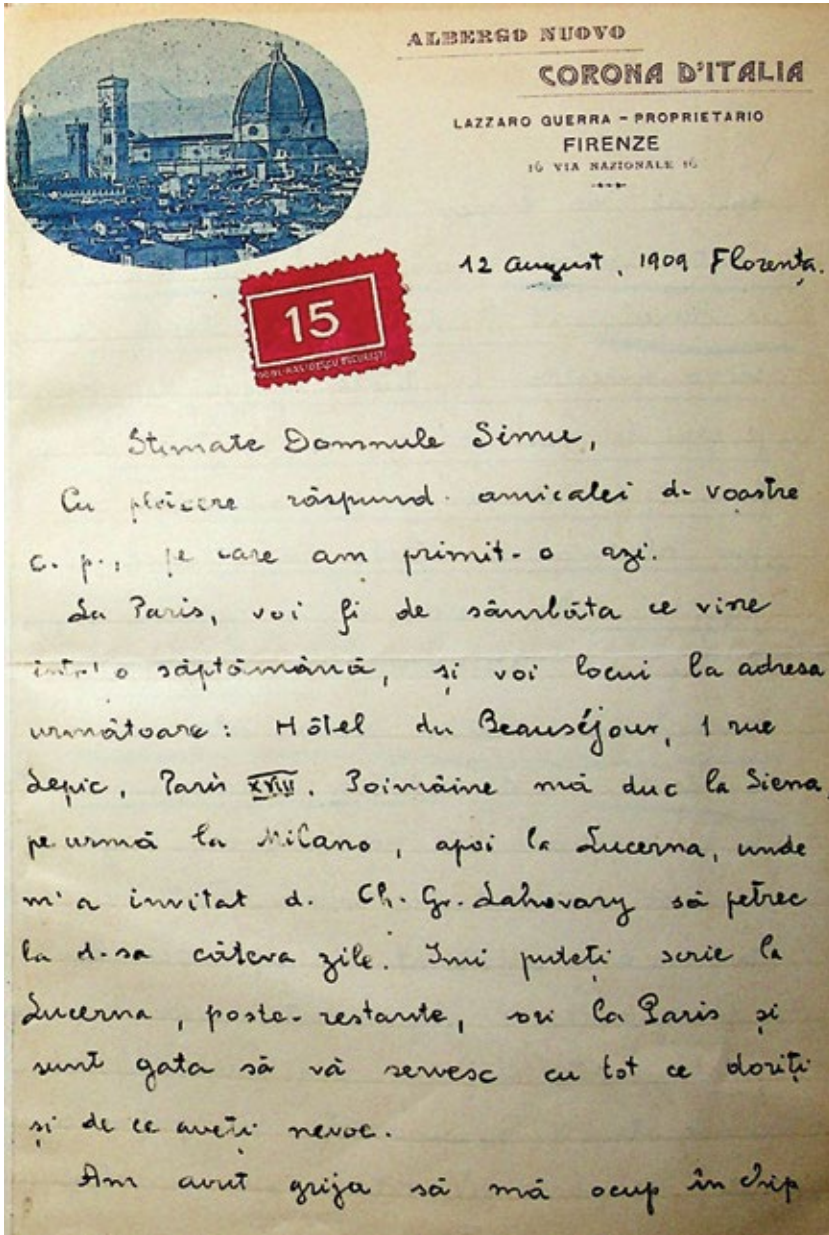 ALBERGO NUOVO
CORONA D'ITALIA
LAZZARO GUERRA - PROPRIETARIO
FIRENZE
16 VIA NAZIONALE 16
12 August, 1909 Florența.
15
Stimate Domnule Simu,
Cu plăcere răspund amicalei d-voastre
c. p., pe care am primit-o azi.
La Paris, voi fi de sâmbăta ce vine
intr'o săptămână, și voi locui la adresa
următoare: Hôtel du Beauséjour, 1 rue
Lepic, Paris XVIII. Poimâine mă duc la Siena,
pe urmă la Milano, apoi la Lucerna, unde
m'a invitat d. Ch. Gr. Lahovary să petrec
la d-sa câteva zile. Imi puteți scrie la
Lucerna, poste-restante, ori la Paris și
sunt gata să vă servesc cu tot ce doriți
și de ce aveți nevoe.
Am avut grija să mă ocup în chip